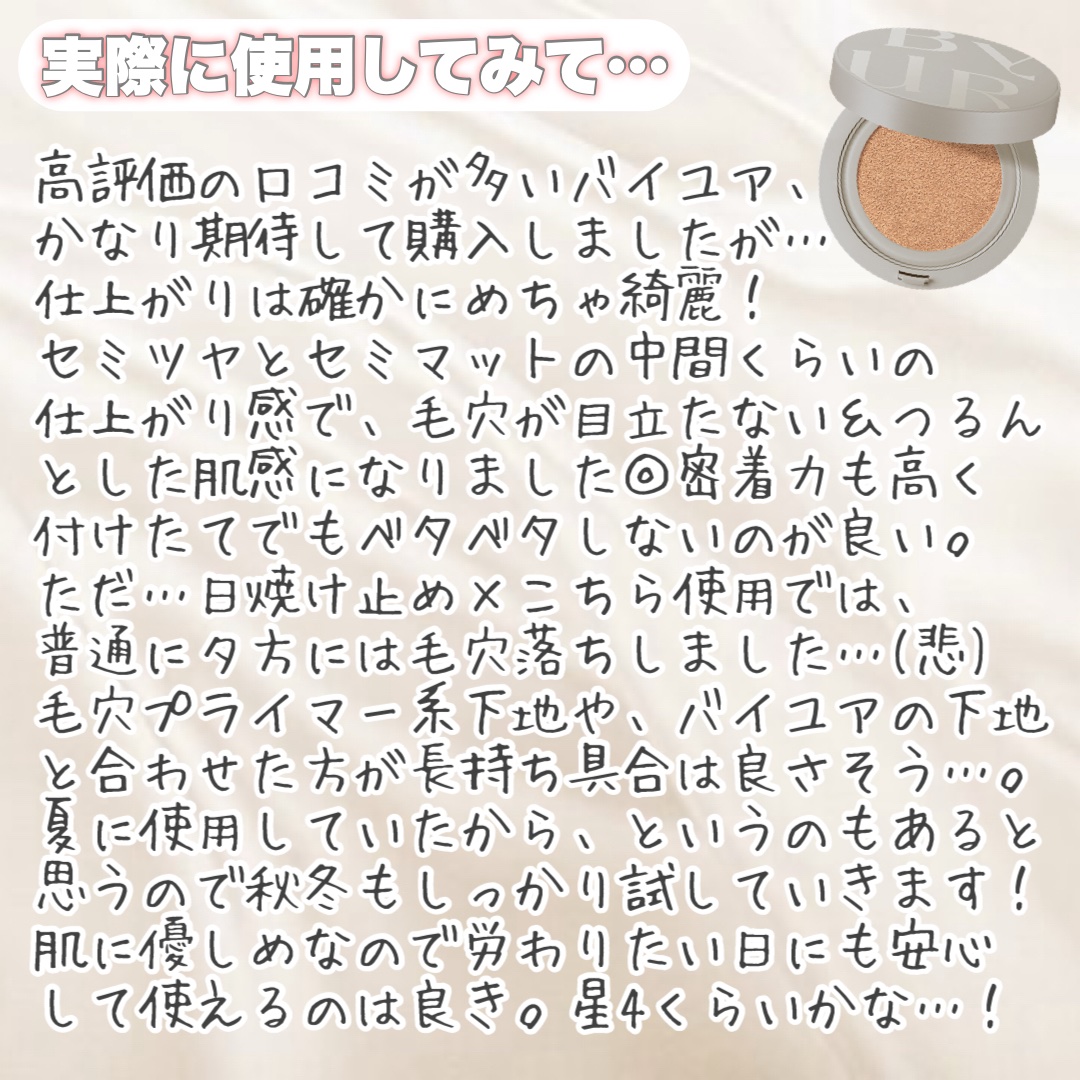 実際に使用してみて…
BY
UR
高評価の口コミが多いバイユア、
かなり期待して購入しましたが…
仕上がりは確かにめちゃ綺麗！
セミツヤとセミマットの中間くらいの
仕上がり感で、毛穴が目立たない&つるん
とした肌感になりました◎密着力も高く
付けたてでもベタベタしないのが良い。
ただ…日焼け止め×こちら使用では、
普通に夕方には毛穴落ちしました…(悲)
毛穴プライマー系下地や、バイユアの下地
と合わせた方が長持ち具合は良さそう…。
夏に使用していたから、というのもあると
思うので秋冬もしっかり試していきます！
肌に優しめなので労わりたい日にも安心
して使えるのは良き。星4くらいかな…！